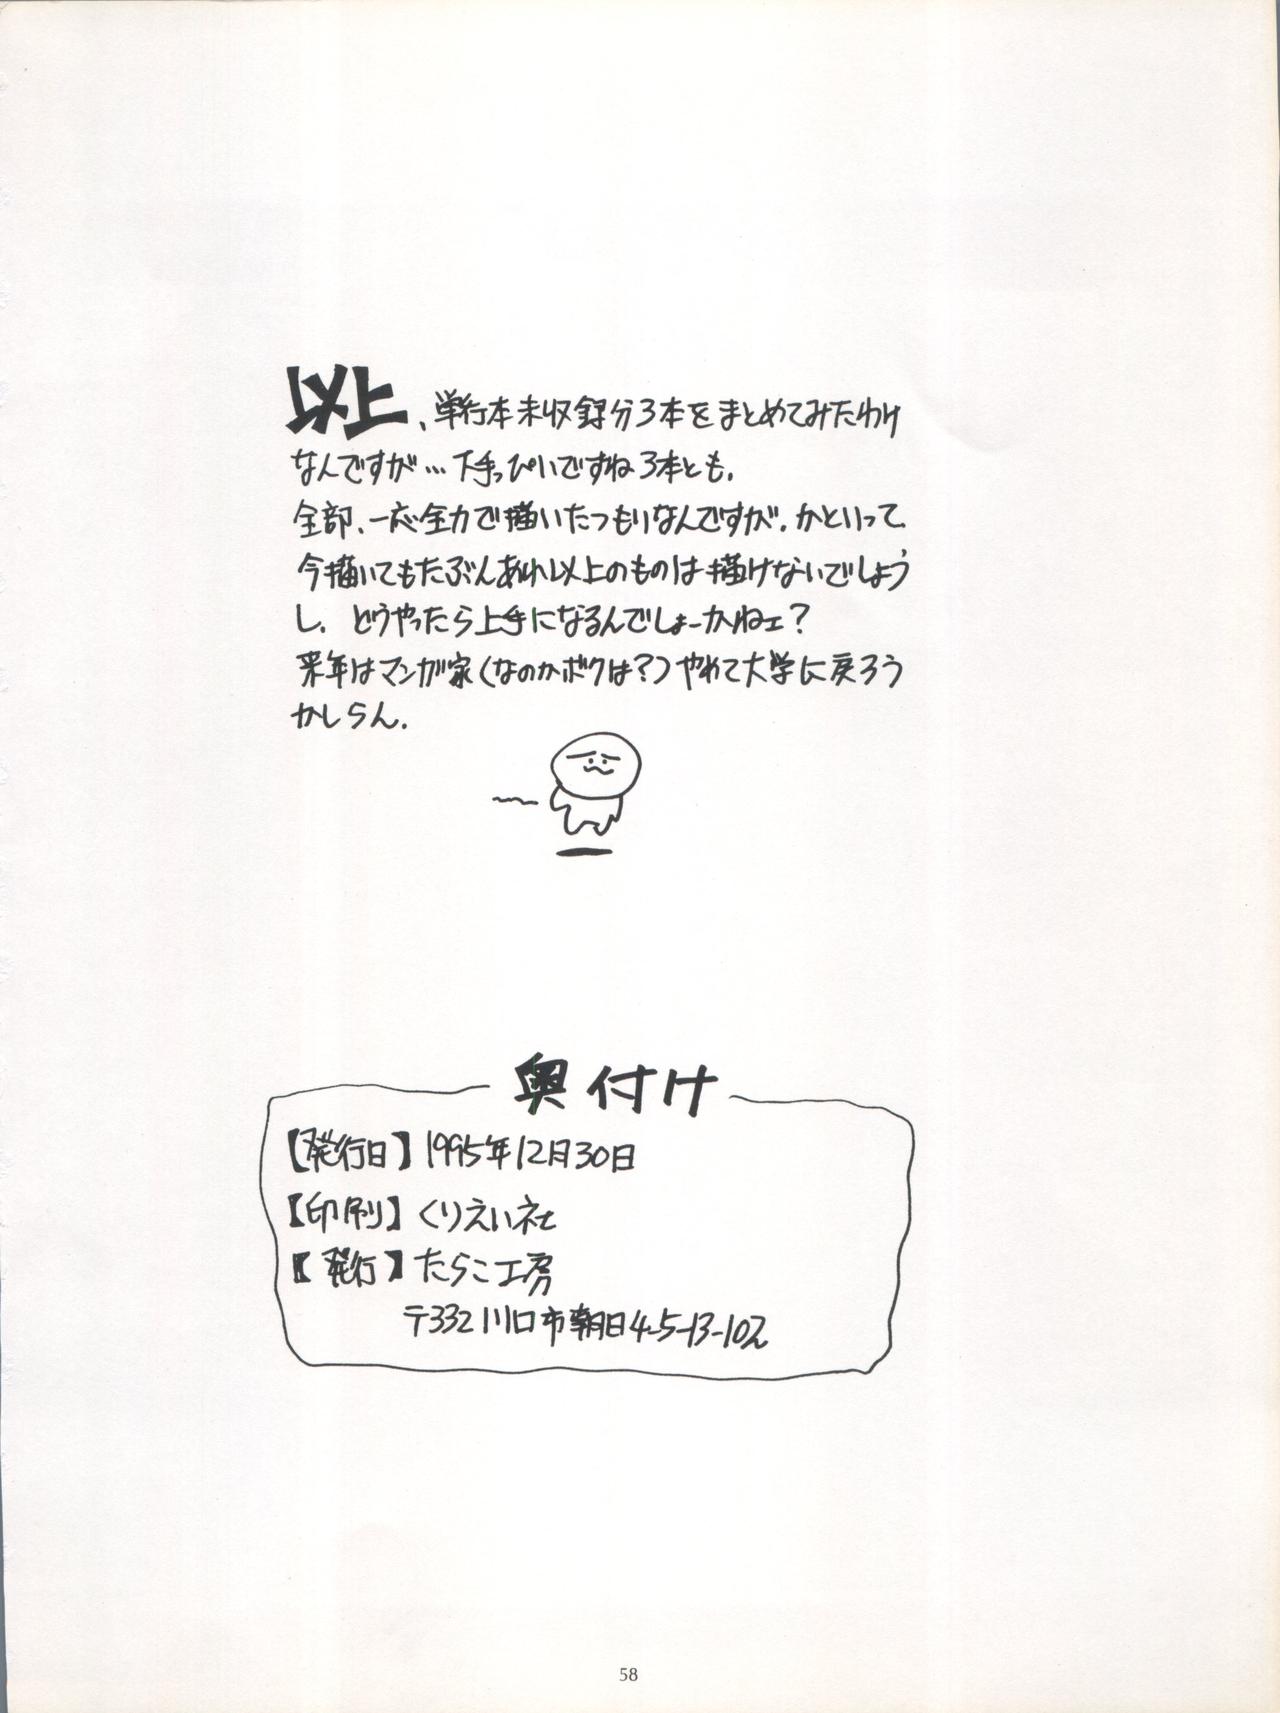 以上、単行本未収録分3本をまとめてみたわけ
なんですが…下手っぴいですね3本とも。
全部、一応全力で描いたつもりなんですが。かといって、
今描いてもたぶんあれ以上のものは描けないでしょう
し。どうやったら上手になるんでしょーかねェ?
来年はマンガ家(なのかボクは?)やめて大学に戻ろう
かしらん。
奥付け
【発行日】1995年12月30日
【印刷】くりえい社
【発行】たらこ工房
〒332 川口市朝日4-5-13-102
58